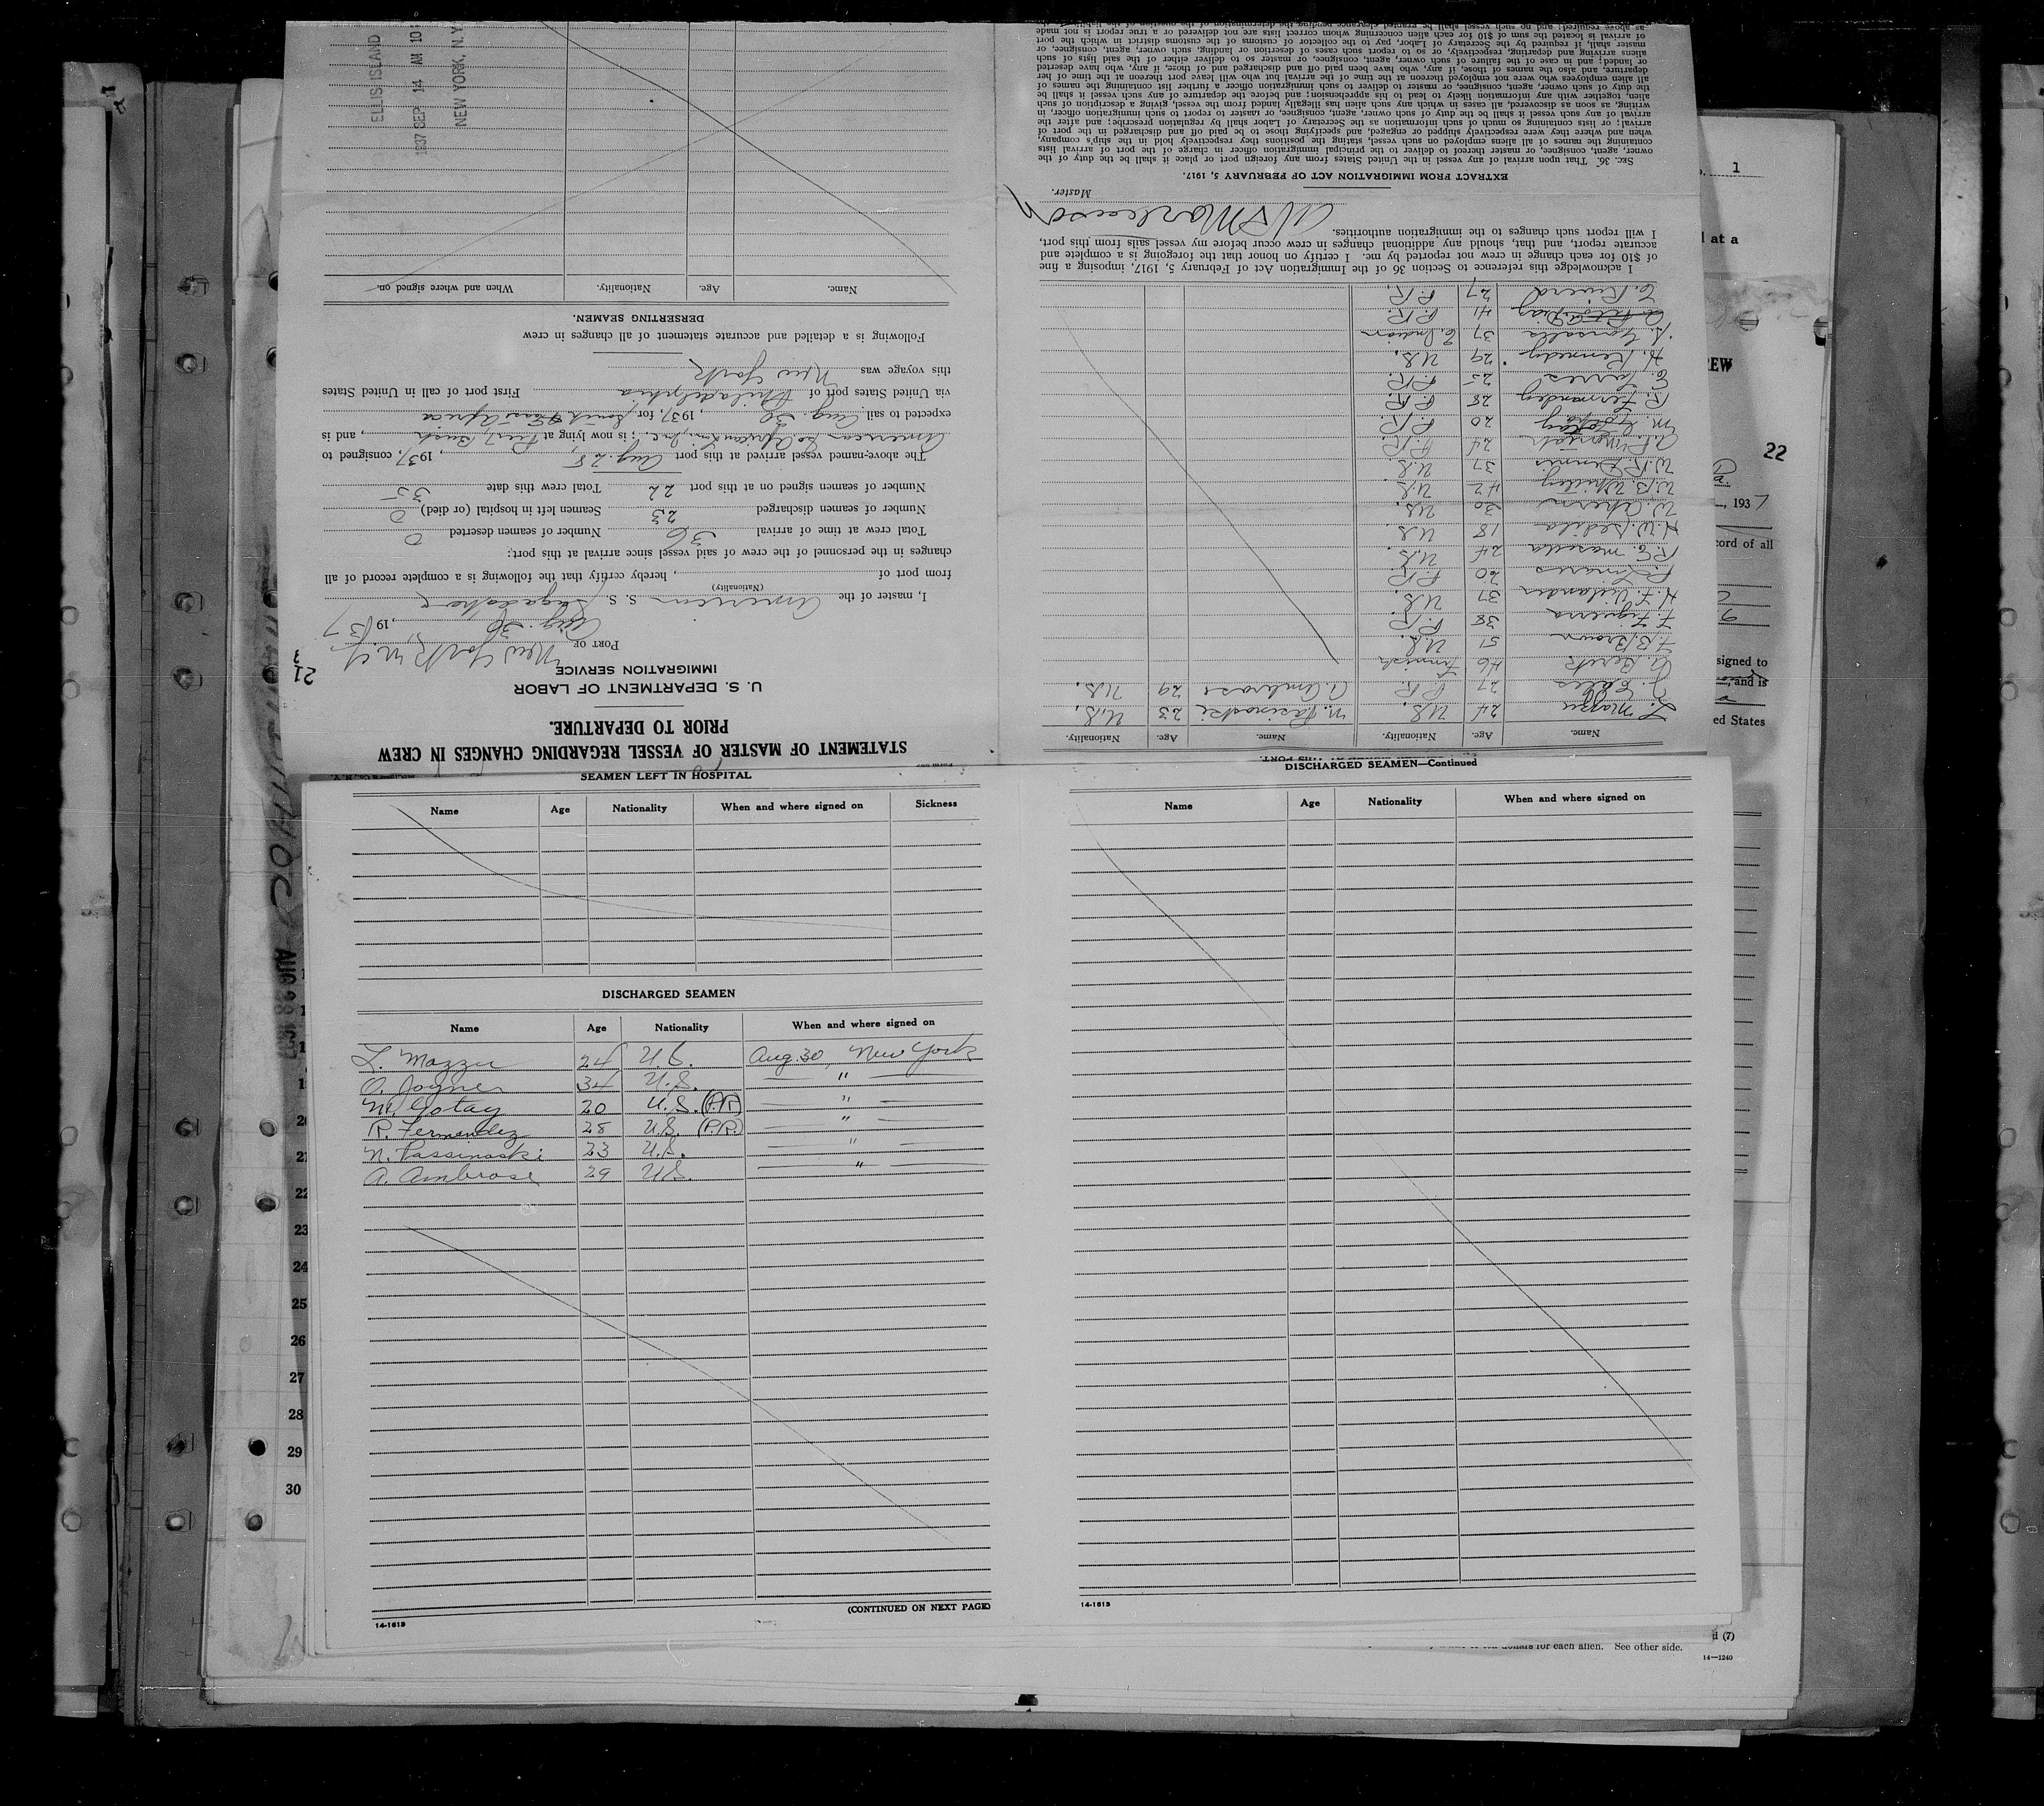 STATEMENT OF MASTER OF VESSEL REGARDING CHANGES IN CREW
PRIOR TO DEPARTURE.
U. S. DEPARTMENT OF LABOR
IMMIGRATION SERVICE
21
PORT OF New York N.Y.
Aug. 30, 1937
I, master of the American S. S.
(Nationality)
from port of , hereby certify that the following is a complete record of all
changes in the personnel of the crew of said vessel since arrival at this port:
Total crew at time of arrival 36 Number of seamen deserted 0
Number of seamen discharged 23 Seamen left in hospital (or died) 0
Number of seamen signed on at this port 22 Total crew this date 35
The above-named vessel arrived at this port Aug. 28, 1937, consigned to
American So African Line, Inc.; is now lying at Pier 1 Bush, and is
expected to sail Aug. 30, 1937, for South Africa
via United States port of Philadelphia First port of call in United States
this voyage was New York
Following is a detailed and accurate statement of all changes in crew
DERSERTING SEAMEN.
Name. Age. Nationality. When and where signed on.
ELLIS ISLAND
1937 SEP 14 AM 10
NEW YORK, N.Y.
Name. Age. Nationality. Name. Age. Nationality.
L. Mazzu 24 U.S. N. 23 U.S.
J. 27 P.R. A. Ambrose 29 U.S.
46 Finnish
F.B. Brown 51 U.S.
F. Figuerra 38 P.R.
H. F. 37 U.S.
P. Linares 20 P.R.
R.E. 24 U.S.
H.W. 18 U.S.
W. Ahern 30 U.S.
W.B. Whitley 42 U.S.
W.R. Dennis 37 U.S.
24 P.R.
M. Gotay 20 P.R.
R. Fernandez 28 P.R.
E. Torres 25 P.R.
H. Kennedy 29 U.S.
37 E. Indian
41 P.R.
E. Rivera 27 P.R.
I acknowledge this reference to Section 36 of the Immigration Act of February 5, 1917, imposing a fine
of $10 for each change in crew not reported by me. I certify on honor that the foregoing is a complete and
accurate report, and that, should any additional changes in crew occur before my vessel sails from this port,
I will report such changes to the immigration authorities.
Master.
EXTRACT FROM IMMIGRATION ACT OF FEBRUARY 5, 1917.
SEC. 36. That upon arrival of any vessel in the United States from any foreign port or place it shall be the duty of the
owner, agent, consignee, or master thereof to deliver to the principal immigration officer in charge of the port of arrival lists
containing the names of all aliens employed on such vessel, stating the positions they respectively hold in the ship's company,
when and where they were respectively shipped or engaged, and specifying those to be paid off and discharged in the port of
arrival; or lists containing so much of such information as the Secretary of Labor shall by regulation prescribe; and after the
arrival of any such vessel it shall be the duty of such owner, agent, consignee, or master to report to such immigration officer, in
writing, as soon as discovered, all cases in which any such alien has illegally landed from the vessel, giving a description of such
alien, together with any information likely to lead to his apprehension; and before the departure of any such vessel it shall be
the duty of such owner, agent, consignee, or master to deliver to such immigration officer a further list containing the names of
all alien employees who were not employed thereon at the time of the arrival but who will leave port thereon at the time of her
departure, and also the names of those, if any, who have been paid off and discharged and of those, if any, who have deserted
or landed; and in case of the failure of such owner, agent, consignee, or master so to deliver either of the said lists of such
aliens arriving and departing, respectively, or so to report such cases of desertion or landing, such owner, agent, consignee, or
master shall, if required by the Secretary of Labor, pay to the collector of customs of the customs district in which the port
of arrival is located the sum of $10 for each alien concerning whom correct lists are not delivered or a true report is not made
1
l at a
EW
22
, 1937
cord of all
signed to
, and is
ed States
SEAMEN LEFT IN HOSPITAL
Name Age Nationality When and where signed on Sickness
DISCHARGED SEAMEN
Name Age Nationality When and where signed on
L. Mazzu 24 U.S. Aug. 30, New York
O. Joyner 34 U.S. "
M. Gotay 20 U.S. (P.R.) "
R. Fernandez 28 U.S. (P.R.) "
N. Passinoski 23 U.S. "
A. Ambrose 29 U.S. "
(CONTINUED ON NEXT PAGE)
14-1613
DISCHARGED SEAMEN—Continued
Name Age Nationality When and where signed on
14-1613
22
23
24
25
26
27
28
29
30
d (7)
dollars for each alien. See other side.
14—1240